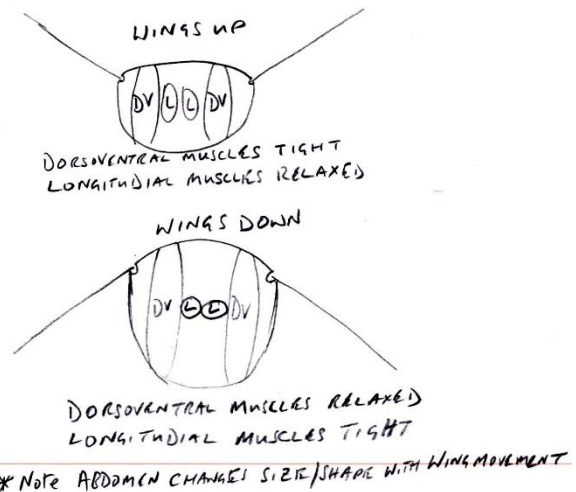 WINGS UP
DV L L DV
DORSOVENTRAL MUSCLES TIGHT
LONGITUDIAL MUSCLES RELAXED
WINGS DOWN
DV L L DV
DORSOVENTRAL MUSCLES RELAXED
LONGITUDIAL MUSCLES TIGHT
* NOTE ABDOMEN CHANGES SIZE/SHAPE WITH WING MOVEMENT